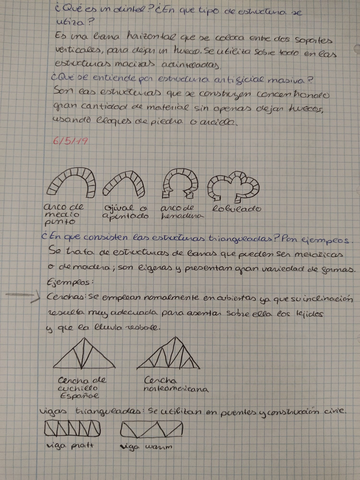 ¿Qué es un dintel? ¿En que tipo de estructura se
utiliza?
Es una barra horizontal que se coloca entre dos soportes
verticales, para dejar un hueco. Se utiliza sobre todo en las
estructuras macizas adinteladas.
¿Que se entiende por estructura artificial masiva?
Son las estructuras que se construyen concentrando
gran cantidad de material sin apenas dejar huecos,
usando bloques de piedra o arcilla.
6/5/19
arco de medio punto
ojival o apuntado
arco de herradura
lobulado
¿En que consisten las estructuras trianguladas? Pon ejemplos.
Se trata de estructuras de barras que pueden ser metálicas
o de madera; son ligeras y presentan gran variedad de formas.
Ejemplos:
Cerchas: Se emplean normalmente en cubiertas ya que su inclinación
resulta muy adecuada para asentar sobre ella los tejidos
y que la lluvia resbale.
Cercha de cuchillo Español
Cercha norteamericana
Vigas trianguladas: Se utilizan en puentes y construcción
viga pratt
viga